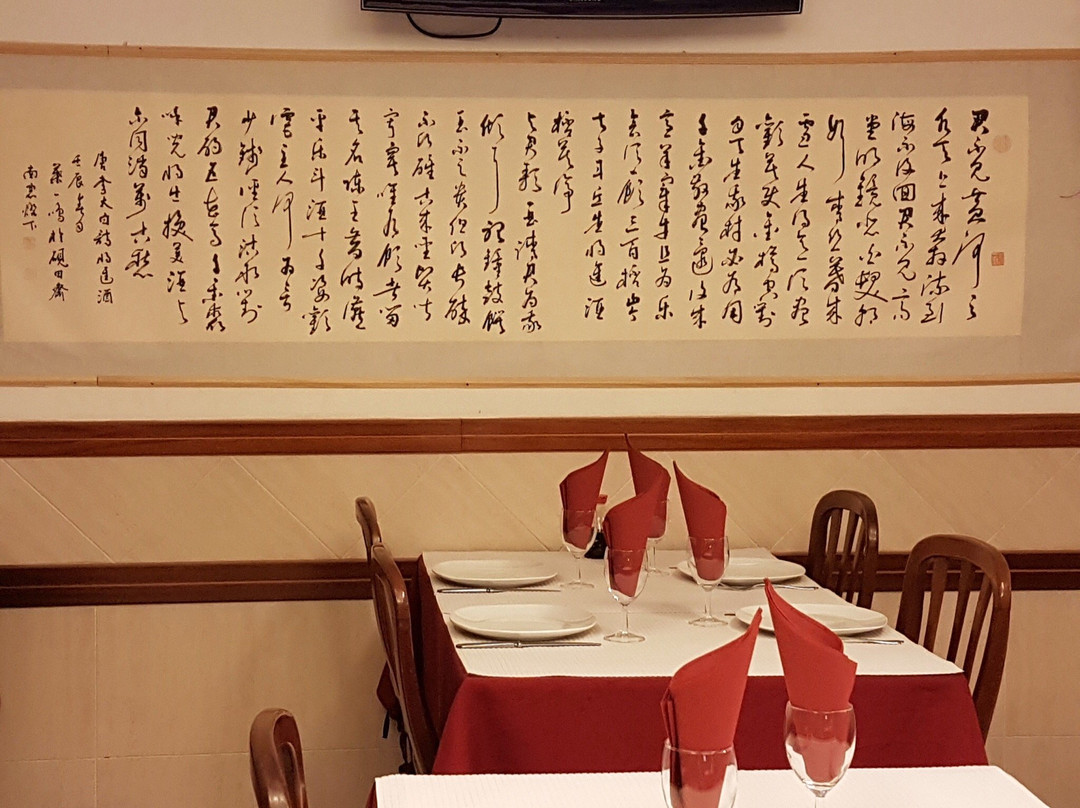 SAMSUNG
君不见黄河之
水天上来奔流到
海不復回君不见高
堂明鏡悲白髮朝
如青丝暮成
雪人生得意須盡
歡莫使金樽空對
月天生我材必有用
千金散盡還復来
烹羊宰牛且为乐
會須一飲三百杯岑
夫子丹丘生將進酒
杯莫停
與君歌一曲請君为我
傾耳聽鐘鼓饌
玉不足贵但願長醉
不願醒古来聖賢皆
寂寞唯有飲者留
其名陳王昔時宴
平乐斗酒十千恣歡
謔主人何为言
少錢徑須沽取對
君酌五花馬千金裘
呼兒將出換美酒与
尔同消萬古愁
唐李太白詩將進酒
壬辰冬月
一鸣於硯田齋
南窗燈下